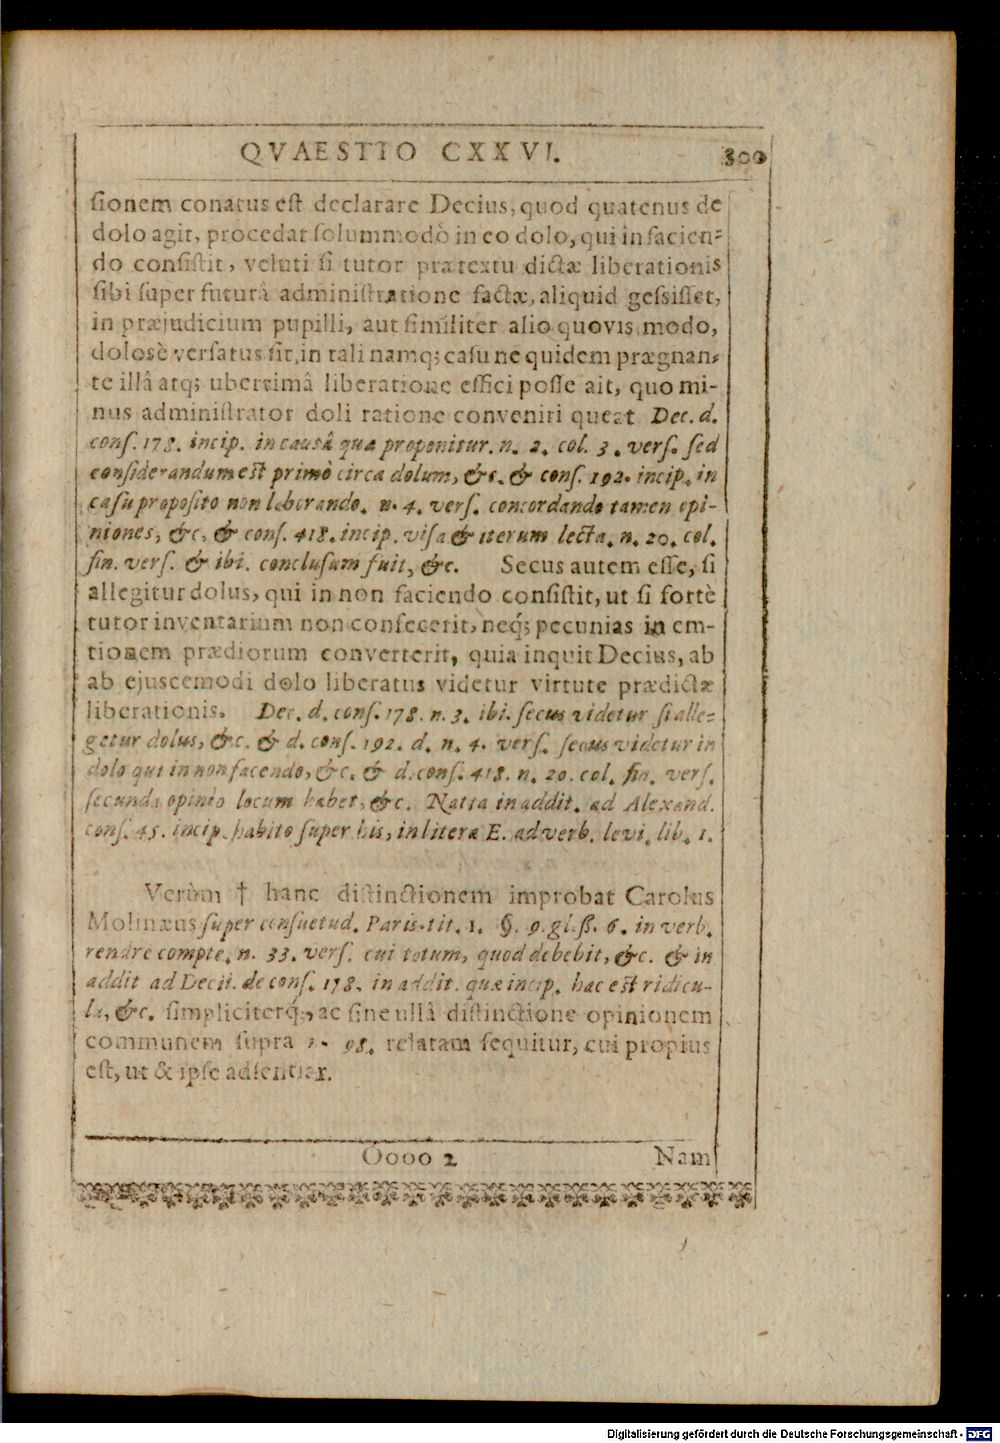 QVAESTIO CXXVI. 300
sionem conatus est declarare Decius, quod quatenus de
dolo agit, procedat solummodò in eo dolo, qui in facien-
do consistit, veluti si tutor prætextu dictæ liberationis
sibi super futurâ administratione factæ, aliquid gessisset,
in præjudicium pupilli, aut similiter alio quovis modo,
dolosè versatus sit, in tali namq; casu ne quidem prægnan-
te illâ atq; uberrimâ liberatione effici posse ait, quo mi-
nus administrator doli ratione conveniri queat Dec. d.
cons. 178. incip. in causâ quæ proponitur. n. 2. col. 3. vers. sed
considerandum est primò circa dolum, &c. & cons. 192. incip. in
casu proposito non laborando. n. 4. vers. concordando tamen opi-
niones, &c, & cons. 418. incip. visa & iterum lecta. n. 20. col.
fin. vers. & ibi. conclusum fuit, &c. Secus autem esse, si
allegitur dolus, qui in non faciendo consistit, ut si fortè
tutor inventarium non confecerit, neq́; pecunias in em-
tionem prædiorum converterit, quia inquit Decius, ab
ab ejuscemodi dolo liberatus videtur virtute prædictæ
liberationis. Dec. d. cons. 178. n. 3. ibi. secus videtur si alle-
getur dolus, &c. & d. cons. 192. d. n. 4. vers. secus videtur in
dolo qui in non facendo, &c. & d. cons. 418. n. 20. col. fin. vers.
secunda opinio locum habet, &c. Natta in addit. ad Alexand.
cons. 45. incip. habito super his, in litera E. ad verb. levi. lib. 1.
Verùm † hanc distinctionem improbat Carolus
Molinæus super consuetud. Paris. tit. 1. §. 9. gl. ß. 6. in verb.
rendre compte. n. 33. vers. cui totum, quod debebit, &c. & in
addit ad Decii. de cons. 178. in addit. quæ incip. hac est ridicu-
la, &c. simpliciterq́;, ac sine ullâ distinctione opinionem
communem supra n. 98. relatam sequitur, cui propius
est, ut & ipse adsentiar.
Oooo 2 Nam
Digitalisierung gefördert durch die Deutsche Forschungsgemeinschaft - DFG